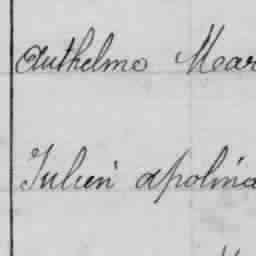 Authelmo Mear
Julien apolina